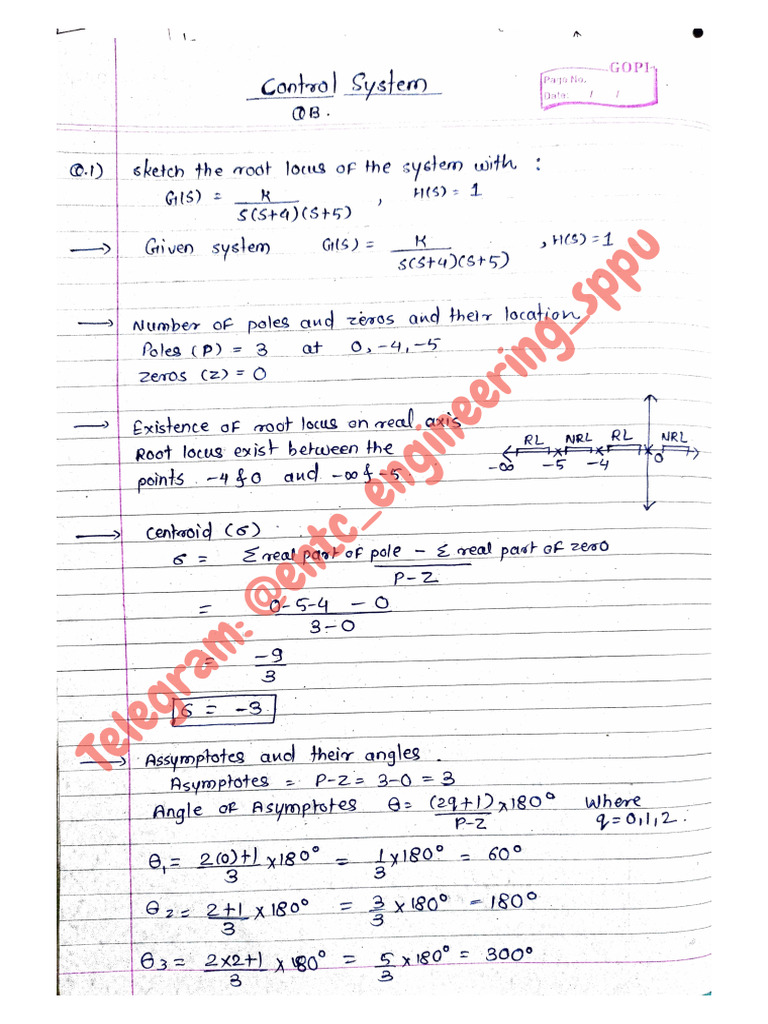 GOPI
Page No.
Date: / /
Control System
QB.
Q.1) Sketch the root locus of the system with :
G(S) = K / S(S+4)(S+5) , H(S) = 1
→ Given system G(S) = K / S(S+4)(S+5) , H(S) = 1
→ Number of poles and zeros and their location
Poles (P) = 3 at 0, -4, -5
zeros (Z) = 0
→ Existence of root locus on real axis
Root locus exist between the
points -4 & 0 and -∞ & -5.
RL NRL RL NRL
-∞ -5 -4 0
→ Centroid (σ)
σ = Σ real part of pole - Σ real part of zero / P-Z
= 0-5-4 - 0 / 3-0
= -9 / 3
σ = -3
→ Assymptotes and their angles.
Asymptotes = P-Z = 3-0 = 3
Angle of Asymptotes θ = (2q+1) / P-Z × 180° where
q = 0,1,2.
θ1 = 2(0)+1 / 3 × 180° = 1/3 × 180° = 60°
θ2 = 2+1 / 3 × 180° = 3/3 × 180° = 180°
θ3 = 2×2+1 / 3 × 180° = 5/3 × 180° = 300°
Telegram: @entc_engineering_sppu